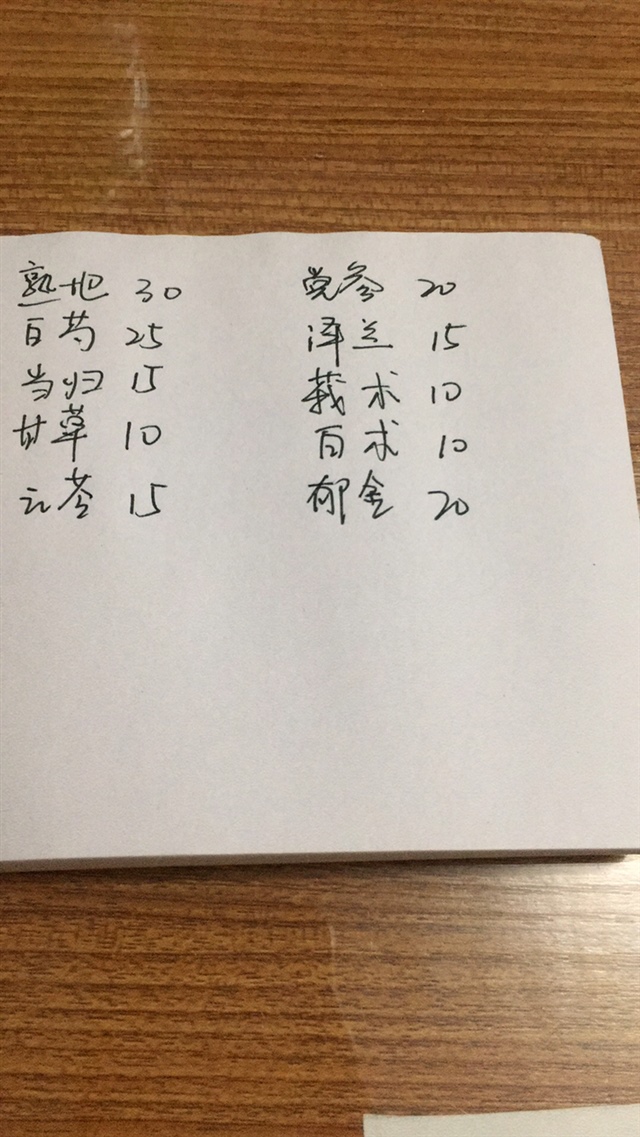 熟地 30 党参 20
百芍 25 泽兰 15
当归 15 莪术 10
甘草 10 百术 10
云苓 15 郁金 20